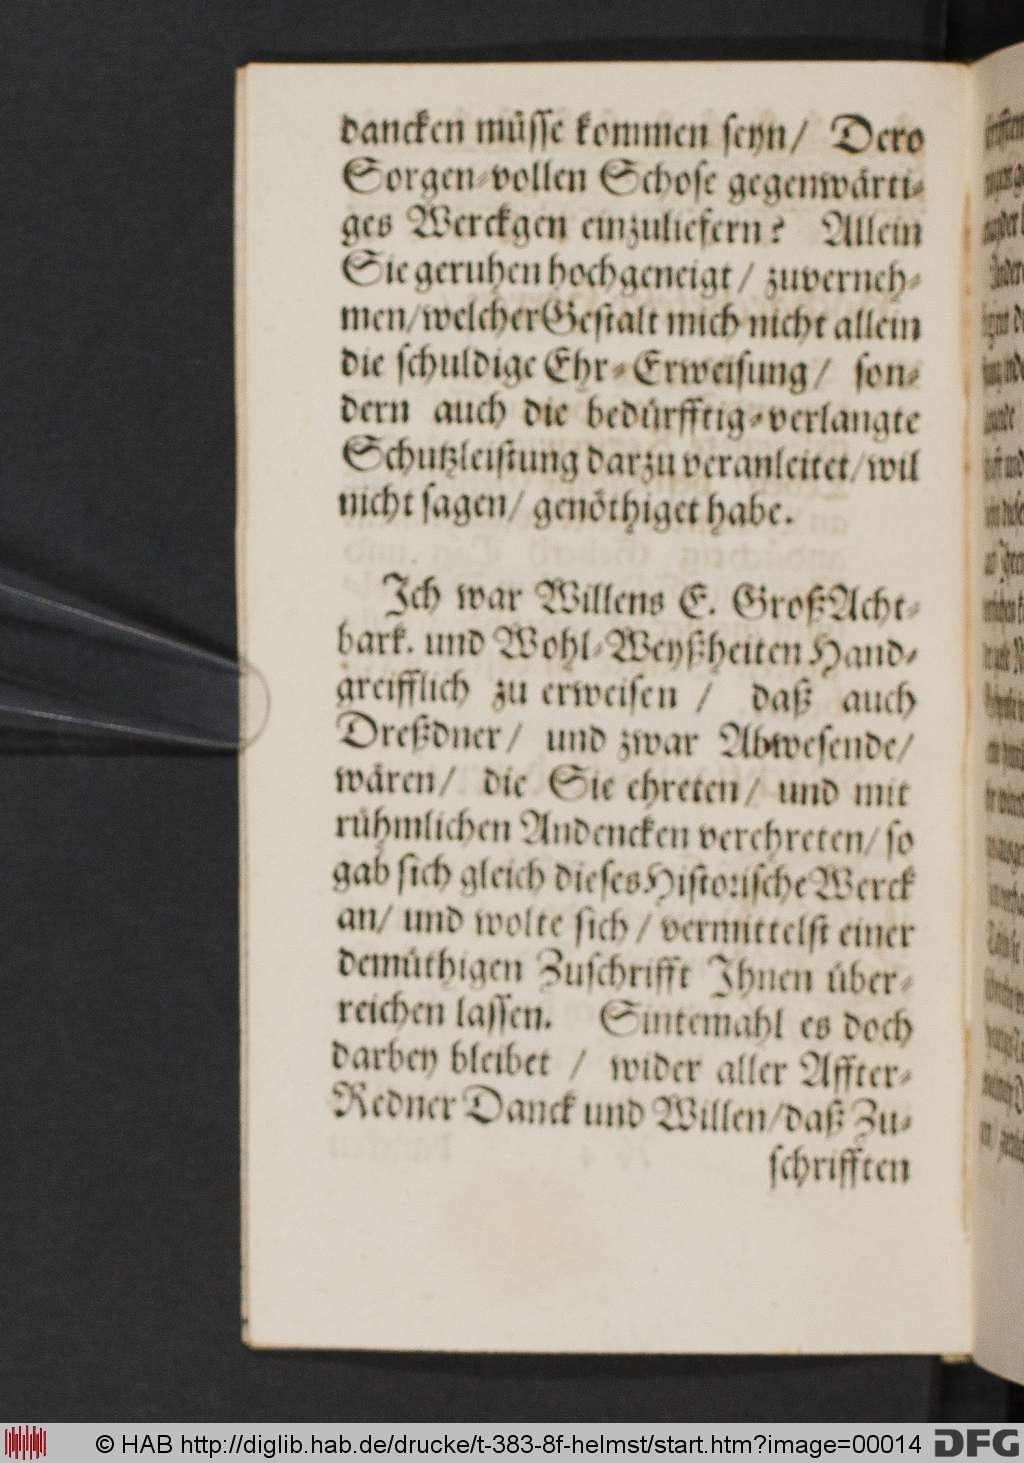 dancken müsse kommen seyn/ Dero
Sorgen-vollen Schose gegenwärti-
ges Werckgen einzuliefern? Allein
Sie geruhen hochgeneigt/ zuverneh-
men/welcher Gestalt mich nicht allein
die schuldige Ehr-Erweisung/ son-
dern auch die bedürfftig-verlangte
Schutzleistung darzu veranleitet/wil
nicht sagen/ genöthiget habe.
Ich war Willens E. GroßAcht-
bark. und Wohl-Weyßheiten Hand-
greifflich zu erweisen / daß auch
Dreßdner/ und zwar Abwesende/
wären/ die Sie ehreten/ und mit
rühmlichen Andencken verehreten/ so
gab sich gleich dieses Historische Werck
an/ und wolte sich / vermittelst einer
demüthigen Zuschrifft Ihnen über-
reichen lassen. Sintemahl es doch
darbey bleibet / wider aller Affter-
Redner Danck und Willen/daß Zu-
schrifften
© HAB http://diglib.hab.de/drucke/t-383-8f-helmst/start.htm?image=00014 DFG